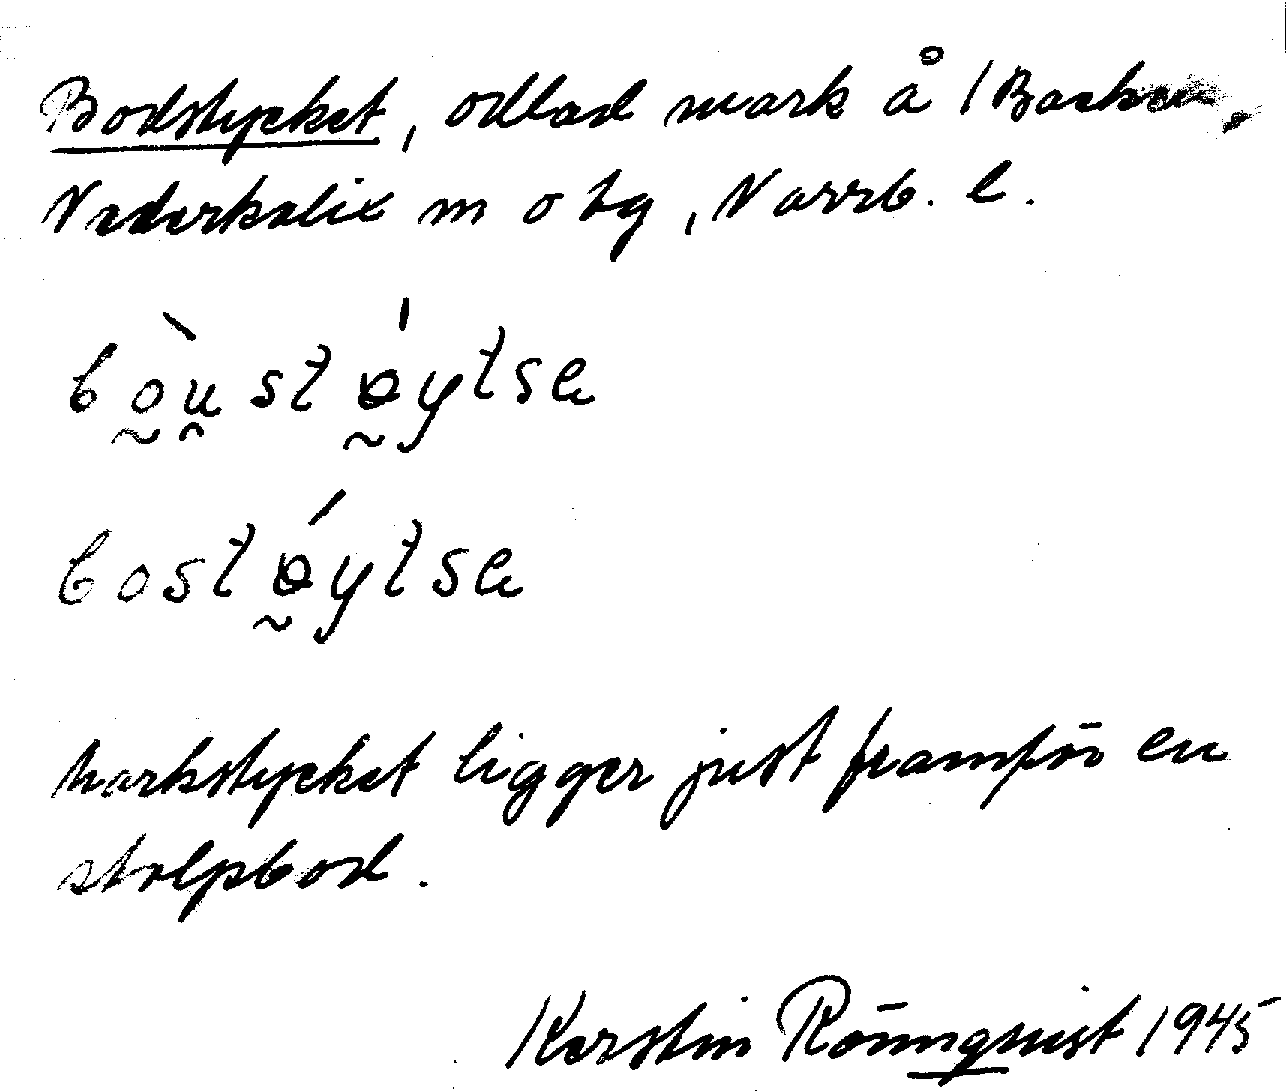 Bodstycket, odlad mark å 1 Backen,
Nederkalix sn o tg, Norrb. l.
bò̰ṵstǿ̰ytsɑ
bostǿ̰ytsɑ
Markstycket ligger just framför en
stolpbod.
Kerstin Rönnquist 1945